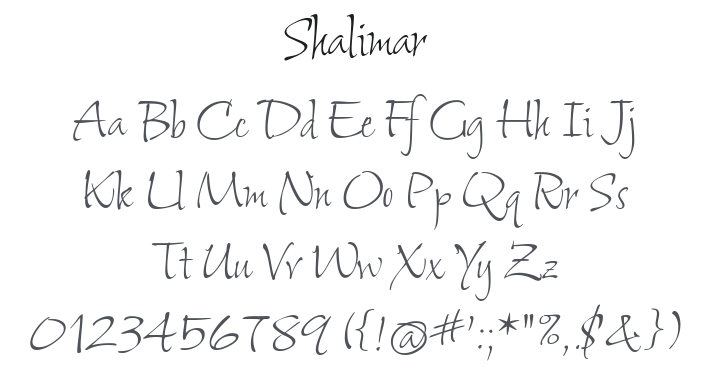 Shalimar
Aa Bb Cc Dd Ee Ff Gg Hh Ii Jj
Kk Ll Mm Nn Oo Pp Qq Rr Ss
Tt Uu Vv Ww Xx Yy Zz
0123456789 ({!@#':;*"%,.$&})